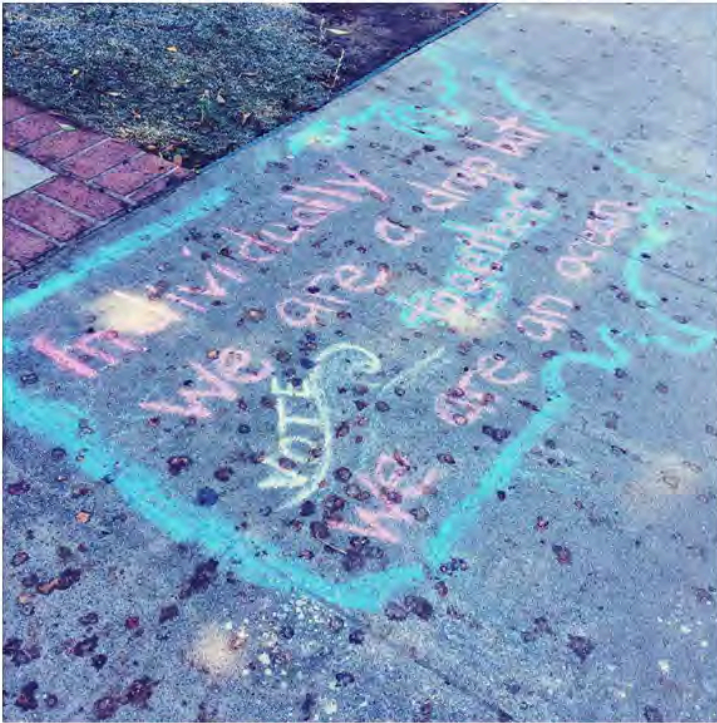 Individually
We are a drop but
together
We are an ocean
VOTE